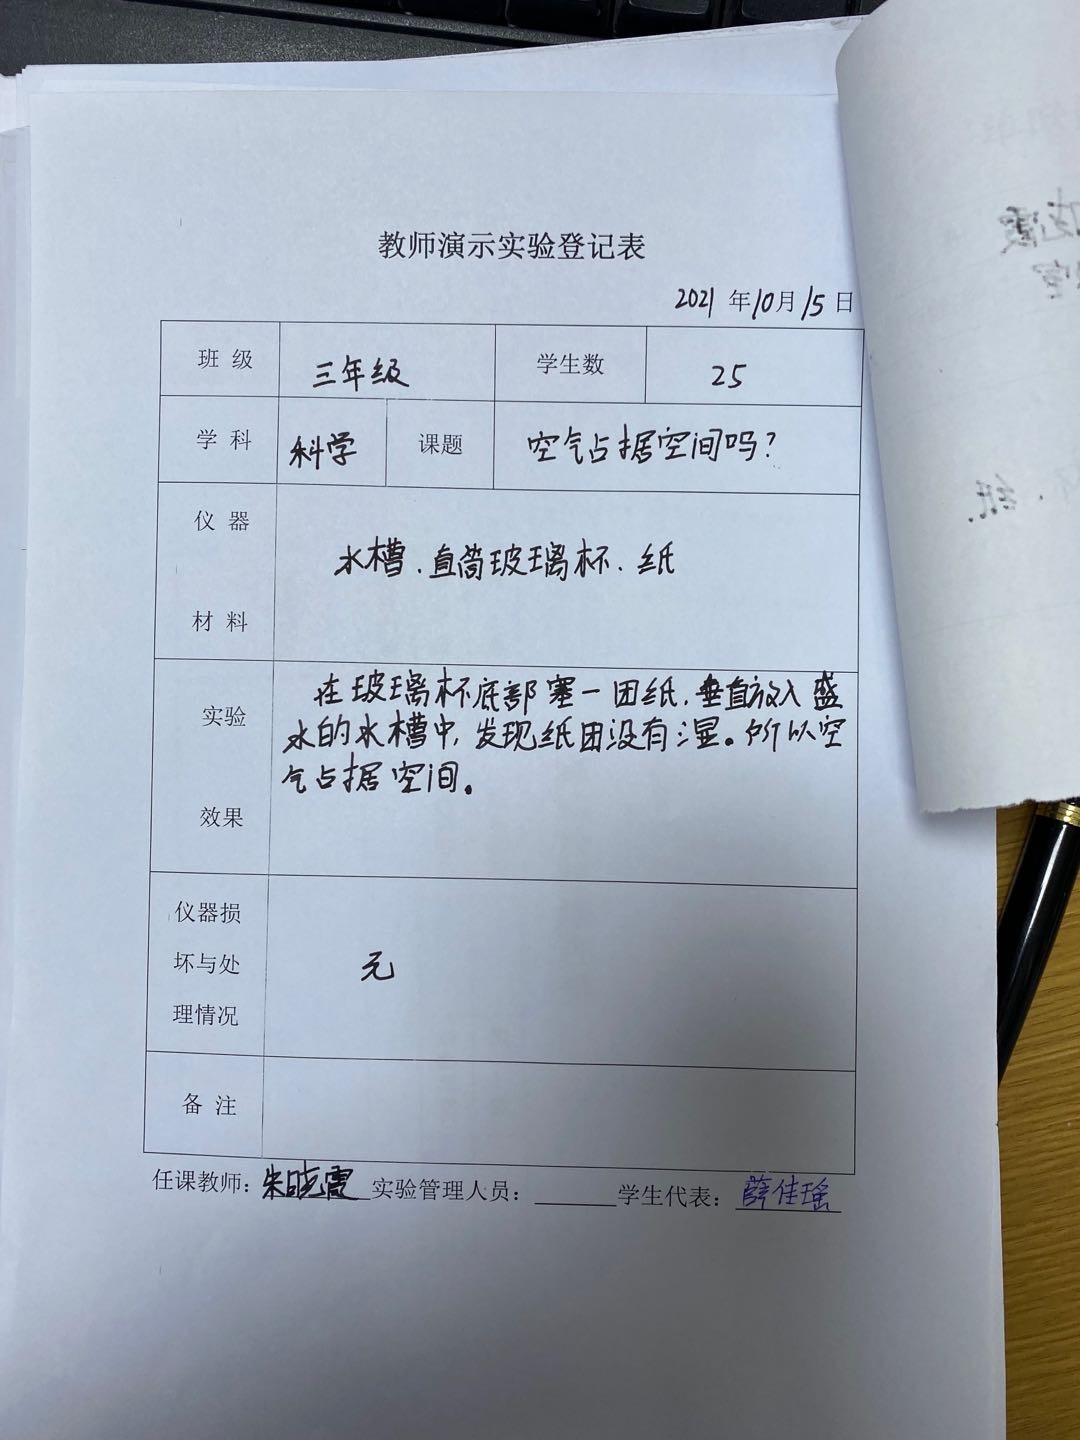 教师演示实验登记表
2021 年10月15日
班 级 三年级 学生数 25
学 科 科学 课题 空气占据空间吗?
仪 器
水槽、直筒玻璃杯、纸
材 料
在玻璃杯底部塞一团纸,垂直放入盛
实验
水的水槽中,发现纸团没有湿。所以空
气占据空间。
效果
仪器损
坏与处
无
理情况
备 注
任课教师:朱晓霞 实验管理人员: 学生代表:薛佳瑶